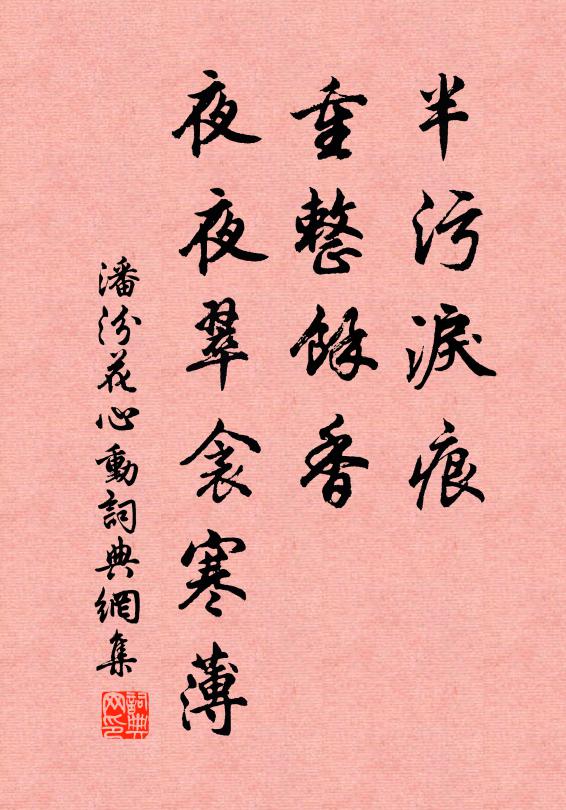 半污淚痕
重整餘香
夜夜翠衾寒薄
潘汾花心動詞典網集
詞典
网印